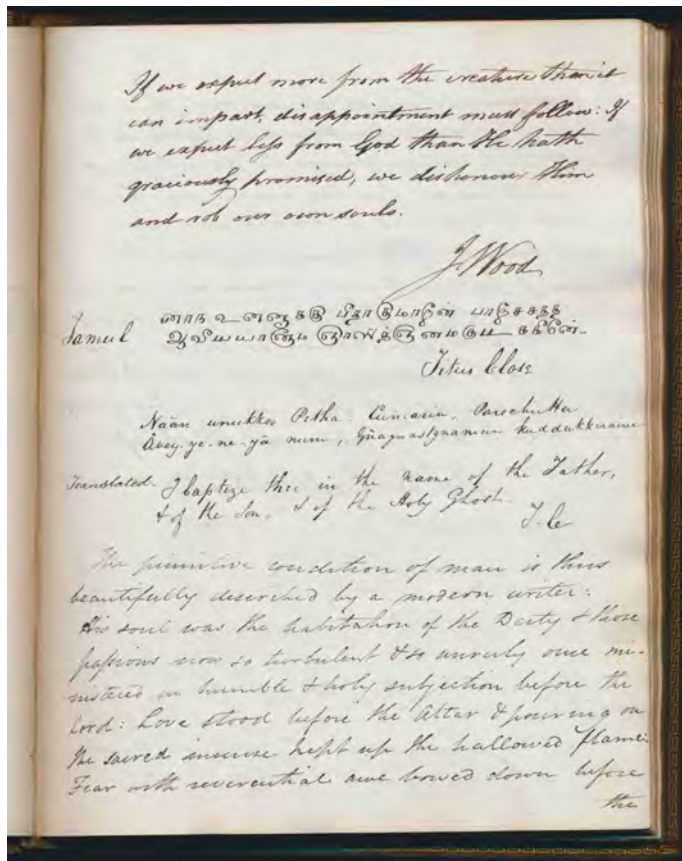 If we expect more from the creature than it
can impart, disappointment must follow: If
we expect less from God than He hath
graciously promised, we dishonour Him
and rob our own souls.
J. Wood
Tamul
நாந உனனுககு பிதாகுமாரன பரிசுசுத்த
ஆவியயானும ஞானஸ்த்ஞனமகுட ககிறேன.
Titus Close
Nāān unukkoo Petha. Cumarin, Parechutta
Āvey-ye-ne-yā num, Gūagnastgnamum kuddukkirane
Translated. I baptize thee in the name of the Father,
& of the Son, & of the Holy Ghost.
T. C
The primitive condition of man is thus
beautifully described by a modern writer:
His soul was the habitation of the Deity & those
passions now so turbulent & so unruly once mi-
nistered in humble & holy subjection before the
Lord: Love stood before the Altar & pouring on
the sacred incense kept up the hallowed flame:
Fear with reverential awe bowed down before
the